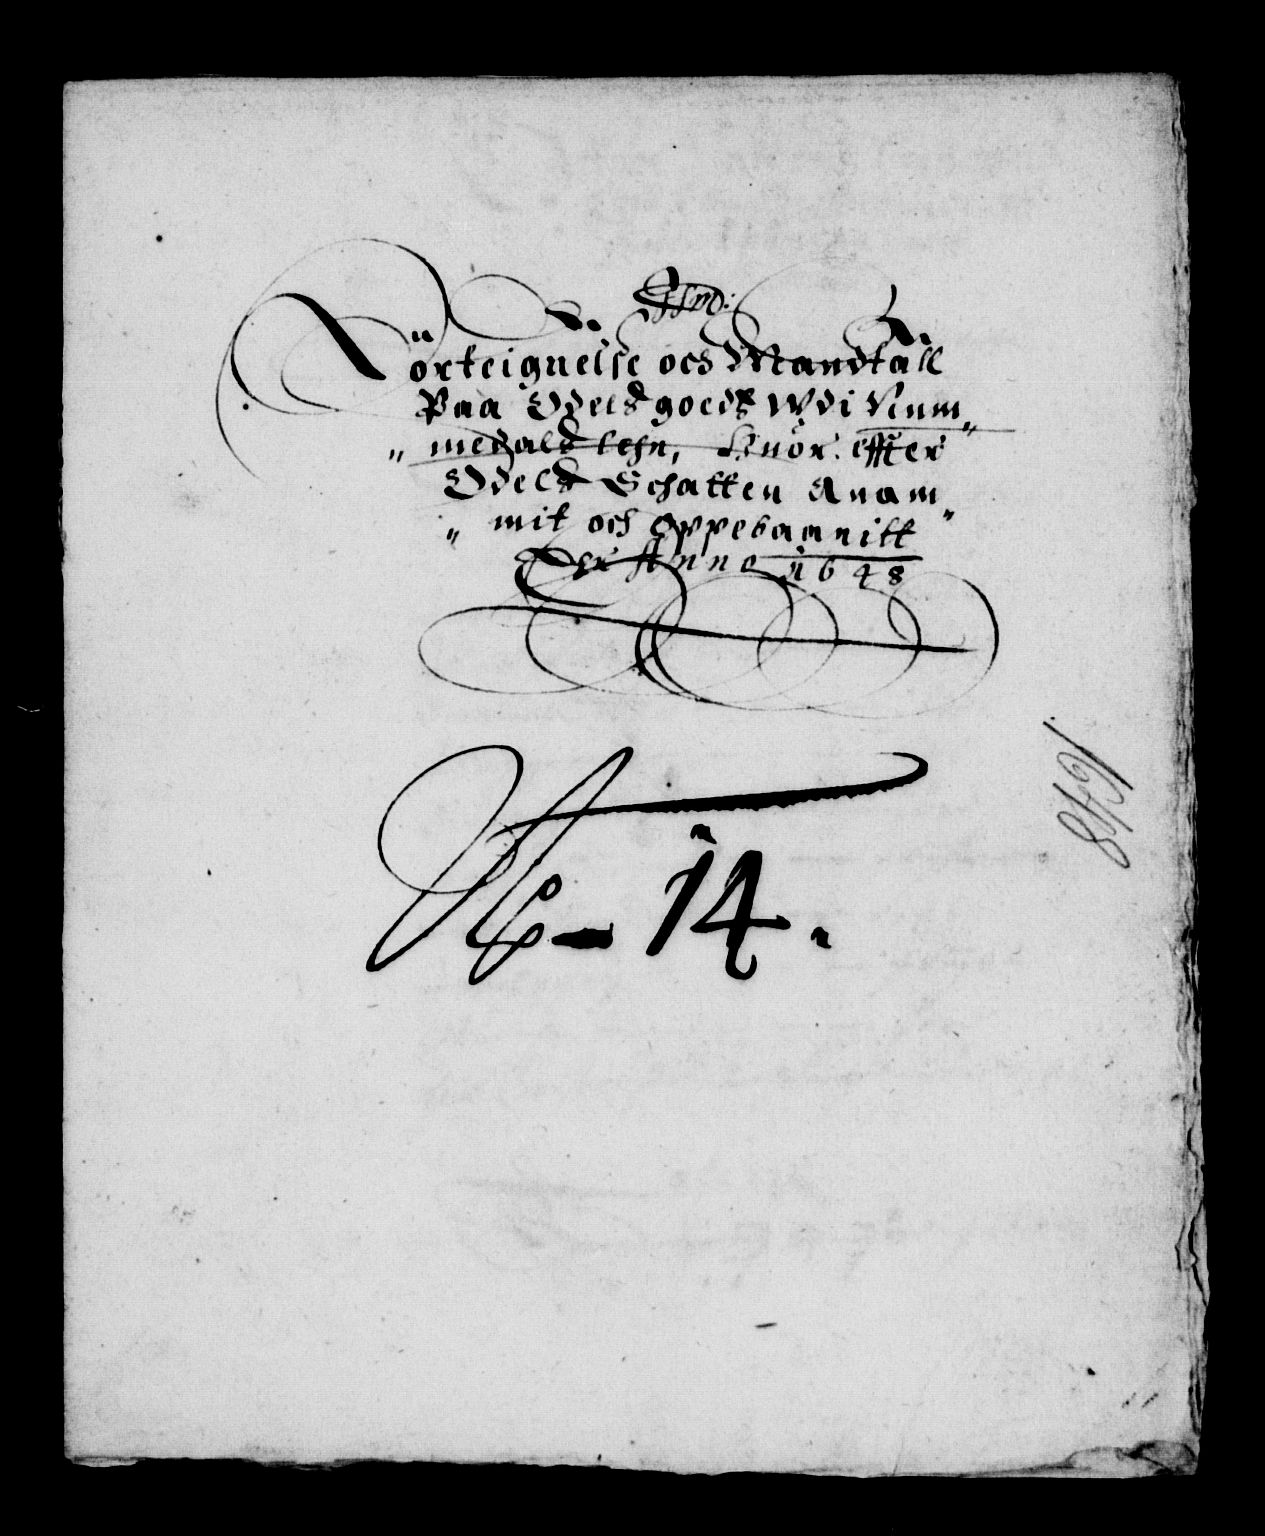 Förteignelse och Mandtall
Paa Odelsgoeds Wdi Num„
„medalds lehn, huor effter
Odels Schatten Anam„
„mit och Oppebaaritt
Anno 1648
No – 14.
1648